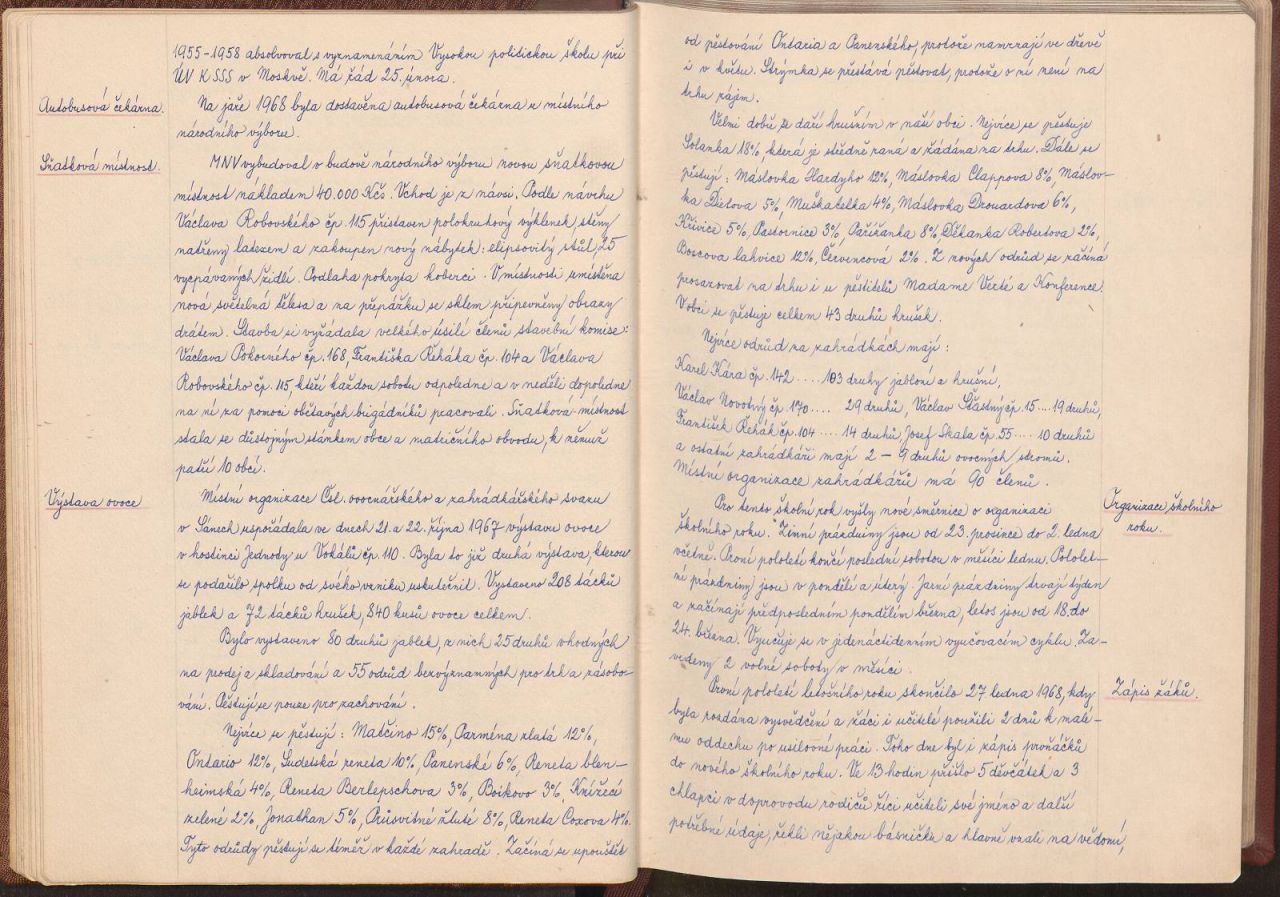 1955-1958 absolvoval s vyznamenáním Vysokou politickou školu při
ÚV KSSS v Moskvě. Má řád 25. února.
Autobusová čekárna.
Na jaře 1968 byla dostavěna autobusová čekárna u místního
národního výboru.
Sňatková místnost.
MNV vybudoval v budově národního výboru novou sňatkovou
místnost nákladem 40.000 Kčs. Vchod je z návsi. Podle návrhu
Václava Robovského čp. 115 přistaven polokruhový výklenek, stěny
natřeny latexem a zakoupen nový nábytek: elipsovitý stůl, 25
vycpávaných židlí. Podlaha pokryta koberci. V místnosti umístěna
nová světelná tělesa a na přepážku se sklem připevněny obrazy
drátem. Stavba si vyžádala velkého úsilí členů stavební komise:
Václava Pokorného čp. 168, Františka Řeháka čp. 104 a Václava
Robovského čp. 115, kteří každou sobotu odpoledne a v neděli dopoledne
na ní za pomoci obětavých brigádníků pracovali. Sňatková místnost
stala se důstojným stánkem obce a matričního obvodu, k němuž
patří 10 obcí.
Výstava ovoce
Místní organizace Čsl. ovocnářského a zahrádkářského svazu
v Sánech uspořádala ve dnech 21. a 22. října 1967 výstavu ovoce
v hostinci Jednoty u Vokálů čp. 110. Byla to již druhá výstava, kterou
se podařilo spolku od svého vzniku uskutečnit. Vystaveno 208 tácků
jablek a 72 tácků hrušek, 840 kusů ovoce celkem.
Bylo vystaveno 80 druhů jablek, z nich 25 druhů vhodných
na prodej a skladování a 55 odrůd bezvýznamných pro trh a zásobo-
vání. Pěstují se pouze pro zachování.
Nejvíce se pěstují: Matčino 15%, Parména zlatá 12%,
Ontario 12%, Sudetská reneta 10%, Panenské 6%, Reneta blen-
heimská 4%, Reneta Berlepschova 3%, Boikovo 3%, Knížecí
zelené 2%, Jonathan 5%, Průsvitné žluté 8%, Reneta Coxova 4%.
Tyto odrůdy pěstují se téměř v každé zahradě. Začíná se upouštět
od pěstování Ontaria a Panenského, protože namrzají ve dřevě
i v květu. Strýmka se přestává pěstovat, protože o ní není na
trhu zájem.
Velmi dobře se daří hrušním v naší obci. Nejvíce se pěstuje
Solanka 18%, která je středně raná a žádána na trhu. Dále se
pěstují: Máslovka Hardyho 12%, Máslovka Clappova 8%, Máslov-
ka Dielova 5%, Muškatelka 4%, Máslovka Drouardova 6%,
Křivice 5%, Pastornice 3%, Pařížanka 8%, Děkanka Robertova 2%,
Boscova lahvice 12%, Červencová 2%. Z nových odrůd se začíná
prosazovat na trhu i u pěstitelů Madame Verté a Konference.
V obci se pěstuje celkem 43 druhů hrušek.
Nejvíce odrůd na zahrádkách mají:
Karel Kára čp. 142 .... 103 druhy jabloní a hrušní,
Václav Novotný čp. 170 .... 29 druhů, Václav Šťastný čp. 15 .... 19 druhů,
František Řehák čp. 104 .... 14 druhů, Josef Skala čp. 55 .... 10 druhů
a ostatní zahrádkáři mají 2 – 9 druhů ovocných stromů.
Místní organizace zahrádkářů má 90 členů.
Organizace školního
roku.
Pro tento školní rok vyšly nové směrnice o organizaci
školního roku. Zimní prázdniny jsou od 23. prosince do 2. ledna
včetně. První pololetí končí poslední sobotou v měsíci lednu. Pololet-
ní prázdniny jsou v pondělí a úterý. Jarní prázdniny trvají týden
a začínají předposledním pondělím března, letos jsou od 18. do
24. března. Vyučuje se v jedenáctidenním vyučovacím cyklu. Za-
vedeny 2 volné soboty v měsíci.
Zápis žáků.
První pololetí letošního roku skončilo 27. ledna 1968, kdy
byla rozdána vysvědčení a žáci i učitelé použili 2 dnů k malé-
mu oddechu po usilovné práci. Toho dne byl i zápis prvňáčků
do nového školního roku. Ve 13 hodin přišlo 5 děvčátek a 3
chlapci v doprovodu rodičů říci učiteli své jméno a další
potřebné údaje, řekli nějakou básničku a hlavně vzali na vědomí,